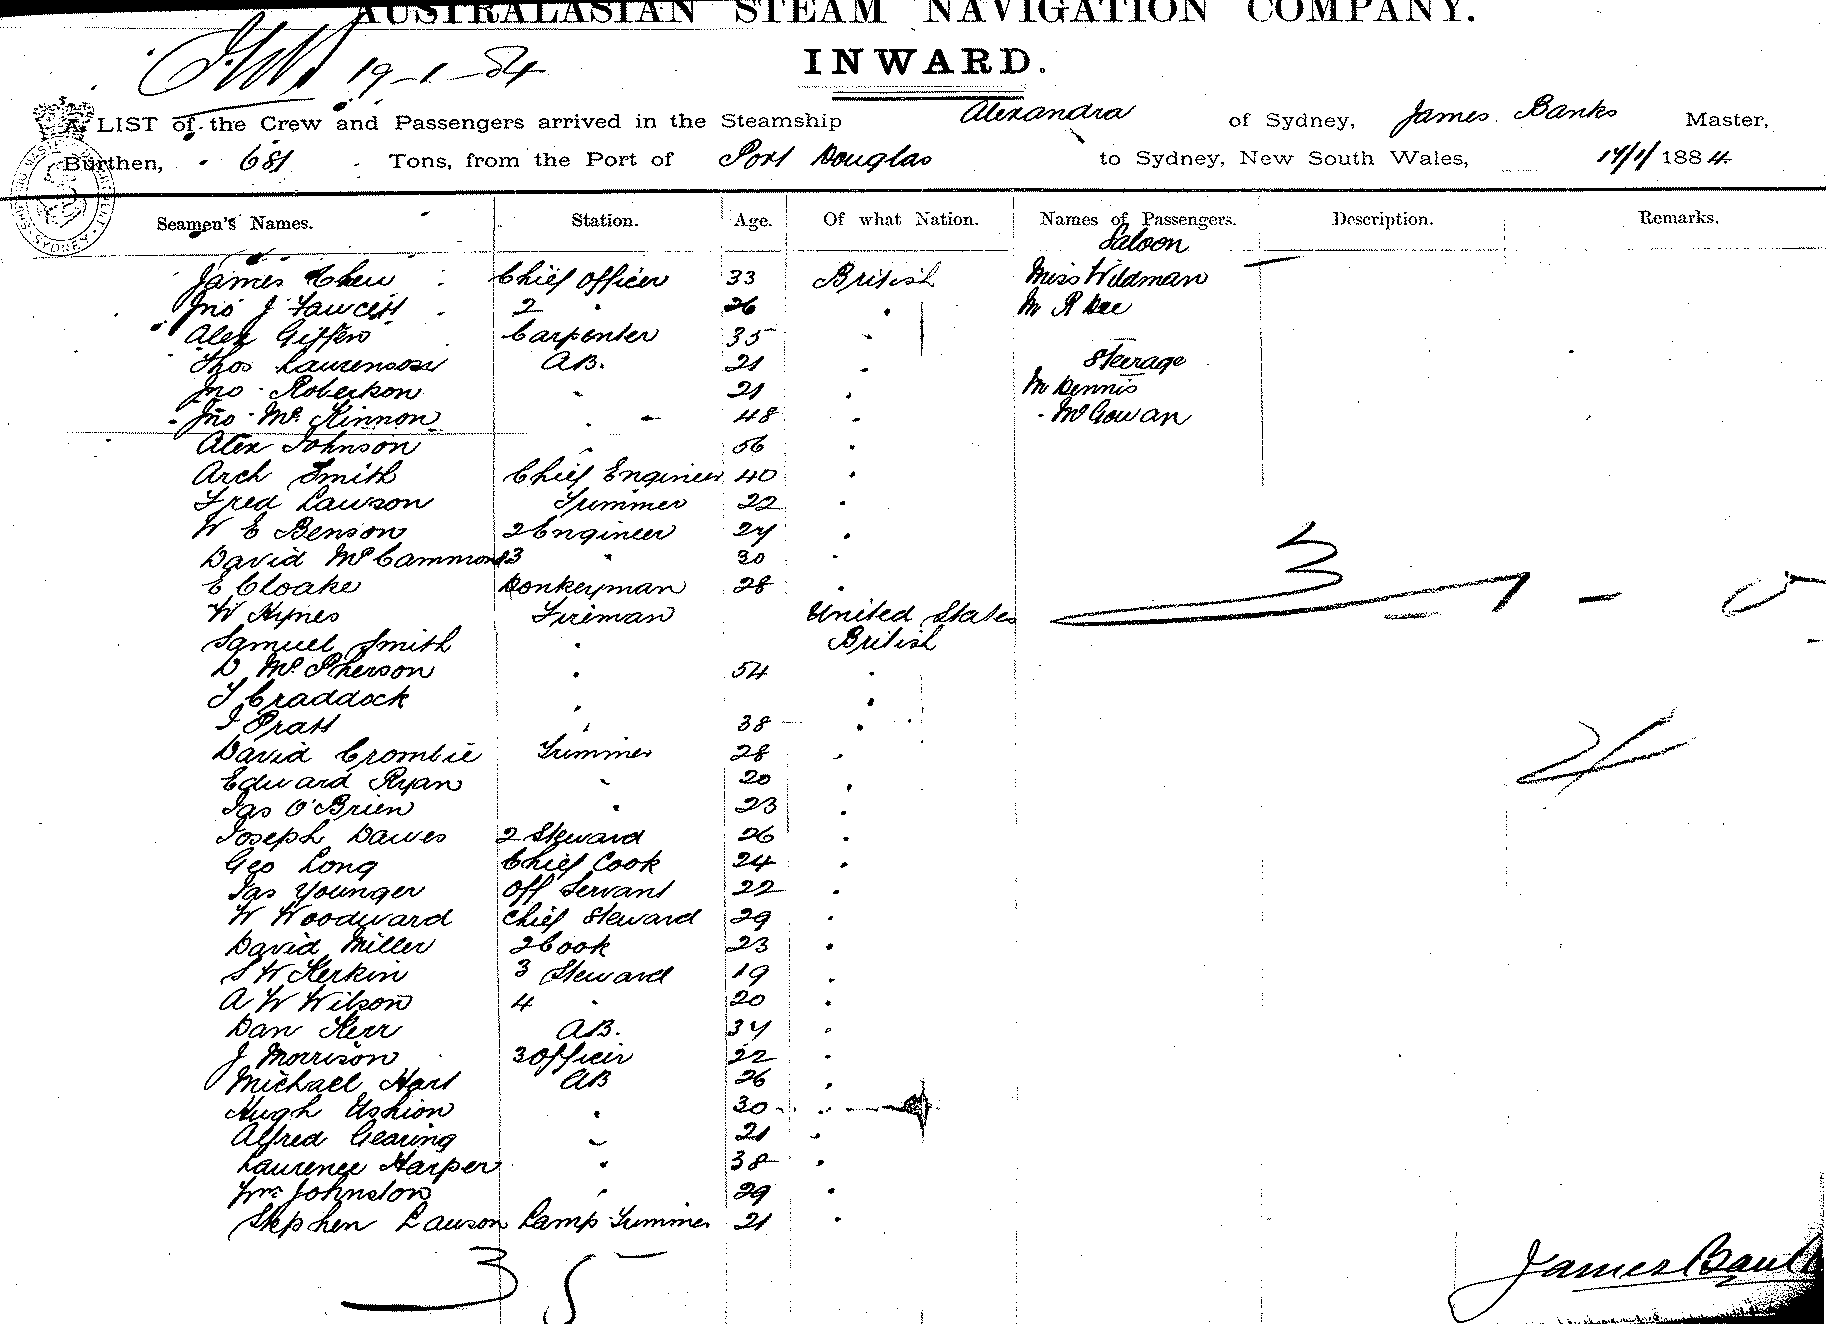 AUSTRALASIAN STEAM NAVIGATION COMPANY.
19-1-84
INWARD.
A LIST of the Crew and Passengers arrived in the Steamship Alexandra of Sydney, James Banks Master,
Burthen, 681 Tons, from the Port of Port Douglas to Sydney, New South Wales, 17/1/ 1884
Seamen's Names. Station. Age. Of what Nation. Names of Passengers. Description. Remarks.
Saloon
James Chew Chief Officer 33 British Miss Wildman
Jno J Fawcett 2 " 26 " Mr R Dee
Alex Giffen Carpenter 35 "
Thos Laurenson AB. 21 " Steerage
Jno Robertson " 21 " Mr Dennis
Jno Mc Kinnon " 48 " " McGowan
Alex Johnson " 56 "
Arch Smith Chief Engineer 40 "
Fred Lawson Trimmer 22 "
W E Benson 2 Engineer 27 "
David McCammond 3 " 30 "
E Cloake Donkeyman 28 "
W Hynes Fireman United States
Samuel Smith " British
D McPherson " 54 "
T Craddock " "
I Pratt " 38 "
David Crombie Trimmer 28 "
Edward Ryan " 20 "
Jas O'Brien " 23 "
Joseph Dawes 2 Steward 26 "
Geo Long Chief Cook 24 "
Jas Younger Off Servant 22 "
W Woodward Chief Steward 29 "
David Miller 2 Cook 23 "
S W Kerkin 3 Steward 19 "
A W Wilson 4 " 20 "
Dan Kerr AB. 37 "
J Morrison 3 Officer 22 "
Michael Hart AB 26 "
Hugh 30 "
Alfred Gearing " 21 "
Laurence Harper " 38 "
Wm Johnston " 29 "
Stephen Lawson Lamp Trimmer 21 "
35
James Banks